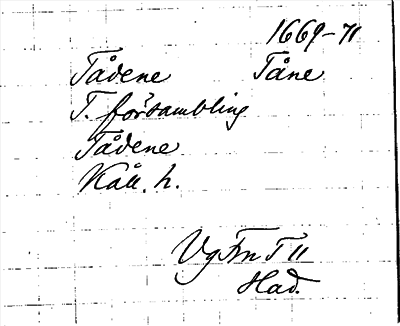 1669-71
Tådene Tåne
T. försambling
Tådene
Kåll. h.
VgFmT 11
Had.